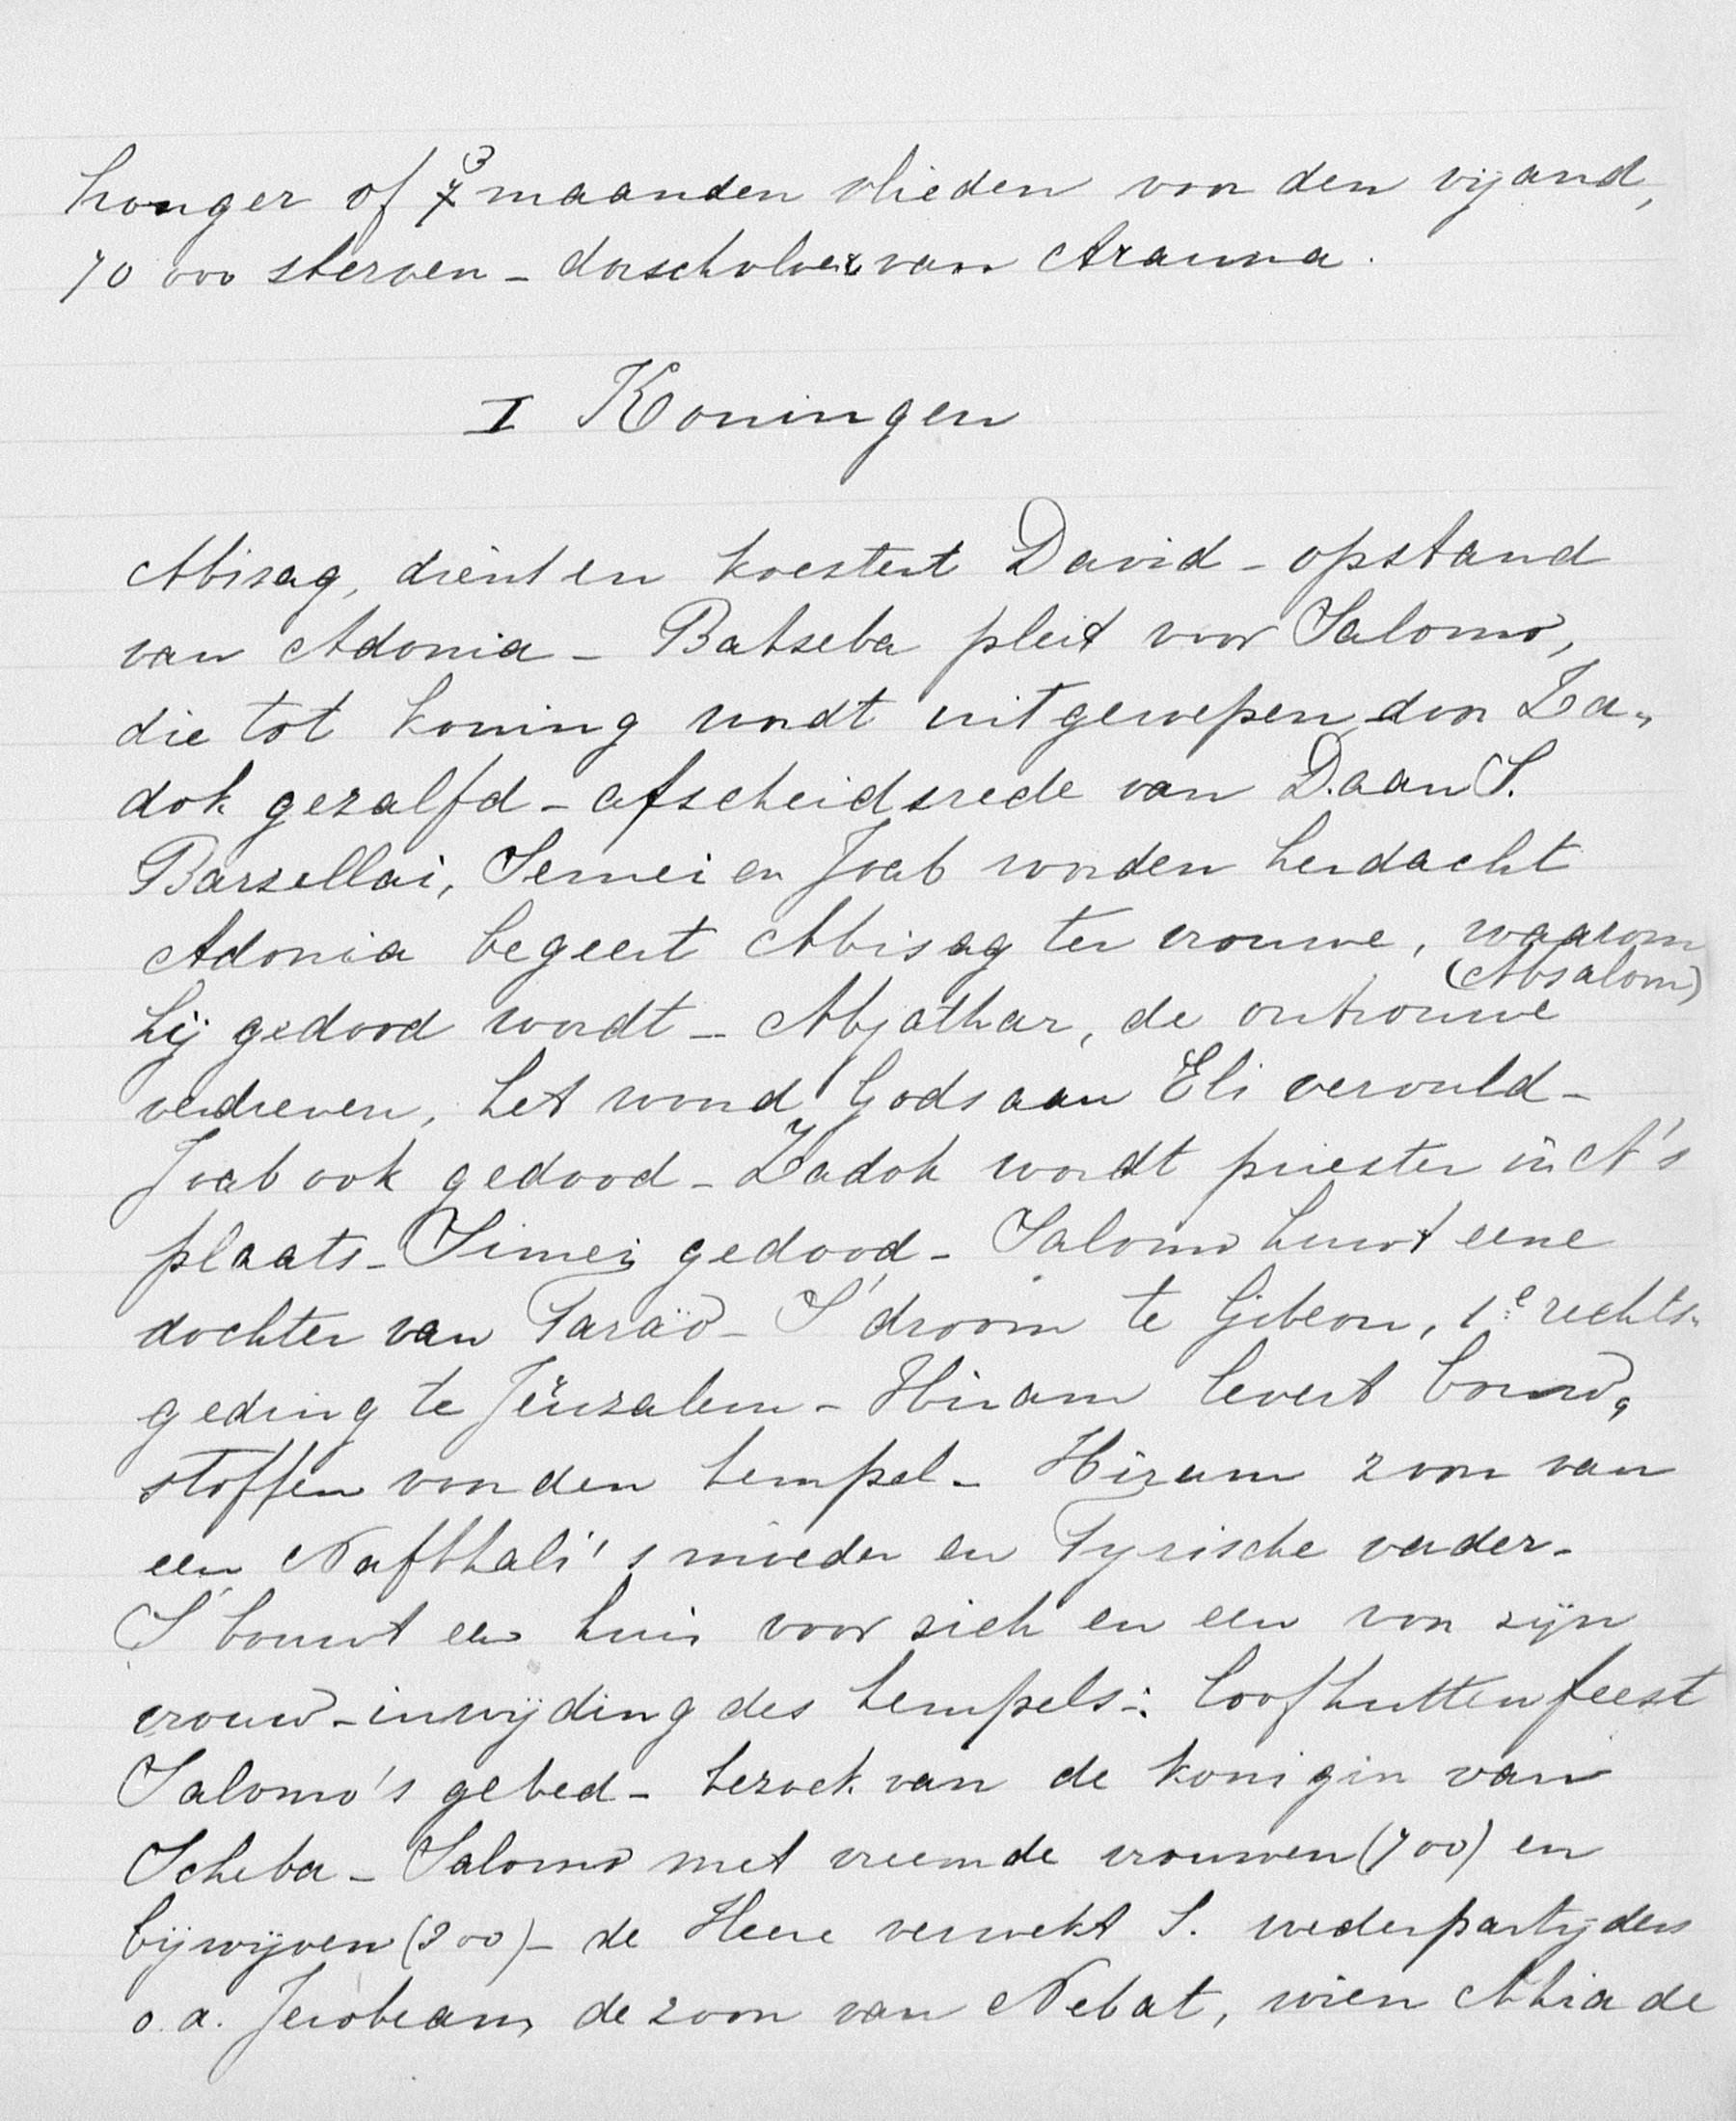 honger of 3 maanden vlieden voor den vijand,
70 000 sterven - dorschvloer van Arauna.
I Koningen
Abisag, dient en koestert David - opstand
van Adonia - Batseba pleit voor Salomo,
die tot koning wordt uitgeroepen door Za„
dok gezalfd - afscheidsrede van D. aan S.
Barzellai, Semei en Joab worden herdacht
Adonia begeert Abisag ter vrouwe, waarom
(Absalom)
hij gedood wordt - Abjathar, de ontrouwe
verdreven, het woord Gods aan Eli vervuld -
Joab ook gedood - Zadok wordt priester in A's
plaats - Simei gedood - Salomo huwt eene
dochter van Faraö - S' droom te Gibeon, 1e rechts„
geding te Jeruzalem - Hiram levert bouw„
stoffen voor den tempel - Hiram zoon van
een Nafthali's moeder en Tyrische vader -
S' bouwt een huis voor zich en een voor zijn
vrouw - inwijding des tempels -: loofhuttenfeest
Salomo's gebed - bezoek van de konigin van
Scheba - Salomo met vreemde vrouwen (700) en
bijwijven (300) - de Heere verwekt S. wederpartijders
o.a. Jerobeam, de zoon van Nebat, wien Ahia de